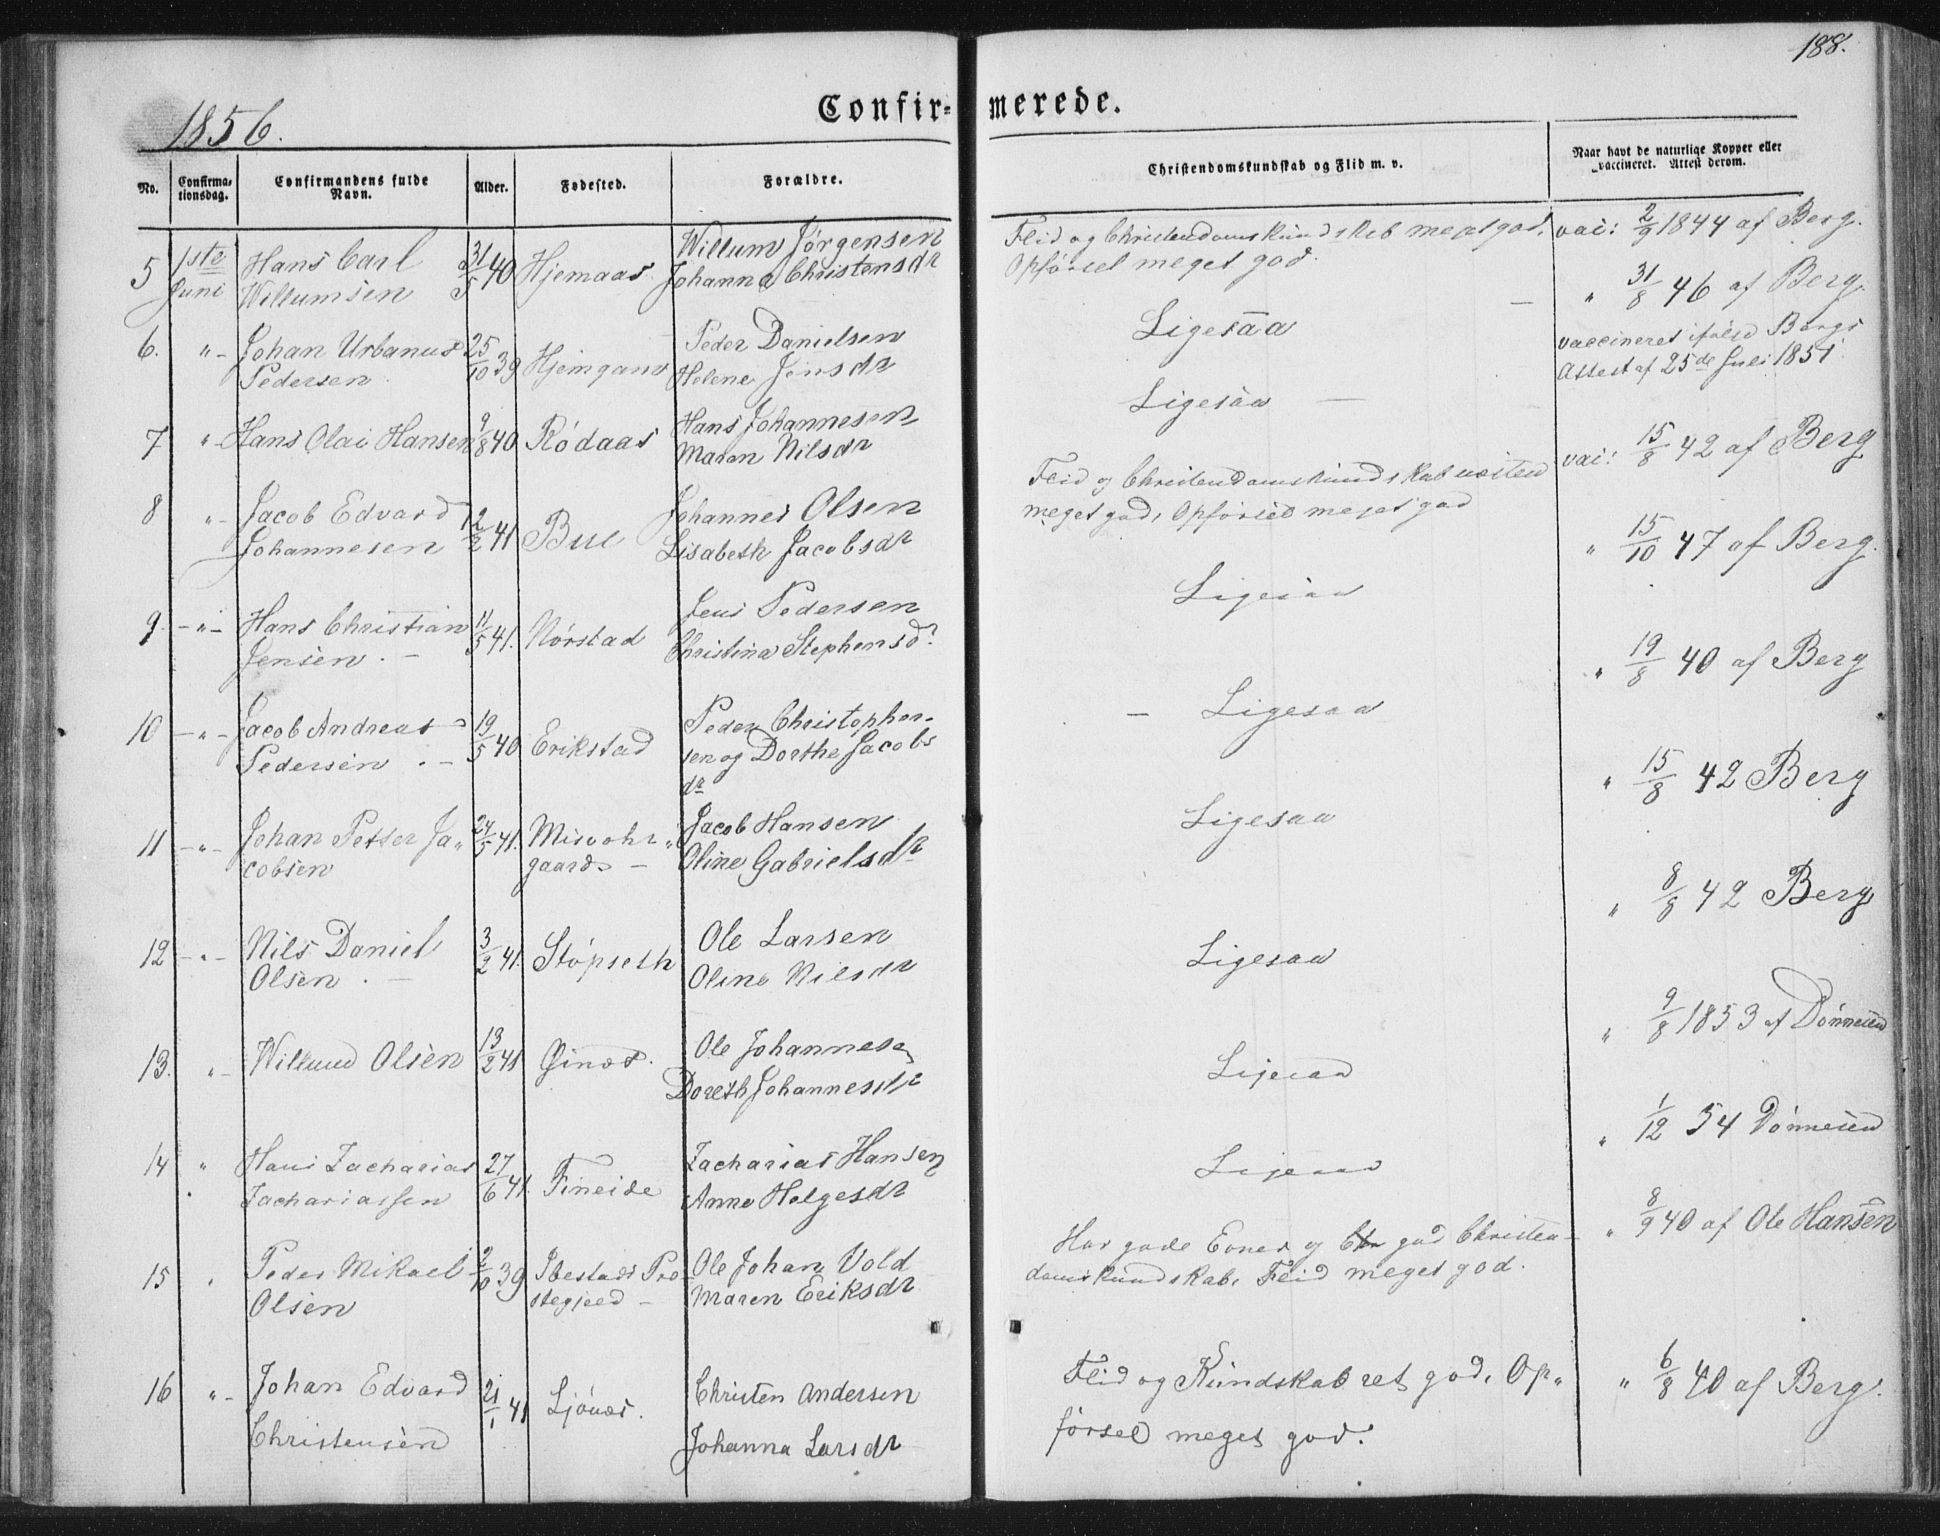 188.
1856.
Confir- merede.
No.
Confirma-
tionsdag.
Confirmandens fulde
Navn.
Alder.
Fødested.
Forældre.
Christendomskundskab og Flid m. v.
Naar havt de naturlige Kopper eller
vaccineret. Attest derom.
5 1ste Juni Hans Carl 31/5 40 Hjemaas Willum Jørgensen
Willumsen Johanna Christensdr
Flid og Christendomskundskab meget god,
Opførsel meget god.
vai: 2/9 1844 af Berg.
6. "- Johan Urbanus 25/10 39 Peder Danielsen
Pedersen Helene Jensdr
Ligesaa
" 31/8 46 af Berg.
7 "- Hans Olai Hansen 9/8 40 Rödaas Hans Johannesen
Maren Nilsdr
Ligesaa —
vaccineret ifølge Bergs
Attest af 25de Juli 1851.
8 "- Jacob Edvard 12/2 41 Bue Johannes Olsen
Johannesen Lisabeth Jacobsdr
Flid og Christendomskundskab næsten
meget god, Opførsel meget god
vai: 15/8 42 af Berg
9. -"- Hans Christian 11/5 41. Nørstad Jens Pedersen
Jensen. - Christina Stephensd?
Ligesaa
" 15/10 47 af Berg.
10 -"- Jacob Andreas 19/5 40 Erikstad Peder Christopher-
Pedersen. - sen og Dorthe Jacobs
dr
- Ligesaa
" 19/8 40 af Berg
11 -"- Johan Petter Ja" 24/5 41. Jacob Hansen
cobsen gaard. - Oline Gabrielsdr
Ligesaa
" 15/8 42 Berg
12 -"- Nils Daniel 3/2 41. Støpseth Ole Larsen
Olsen. - Oline Nilsdr
Ligesaa
" 8/8 42 Berg
13. "- Willund Olsen 13/2 41 Ginæs. Ole Johannesen
Doreth Johannesdr
Ligesaa
" 9/8 1853 af Dönnesen
14 " Hans Zacharias 27/6 41. Fineide Zacharias Hansen
Zachariassen Anne Helgesdr
Ligesaa
" 1/12 54 Dönnesen
15 " Peder Mikael 2/10 39 Ibestads Præ- Ole Johan Vold
Olsen stegjeld - Maren Eriksdr
Har gode Evner og god Christen-
domskundskab, Flid meget god.
" 8/9 40 af Ole Hansen
16 "- Johan Edvard 21/1 41 Ljönæs. Christen Andersen
Christensen Johanna Larsdr
Flid og Kundskab ret god, Op"
førsel meget god.
" 6/8 40 af Berg.